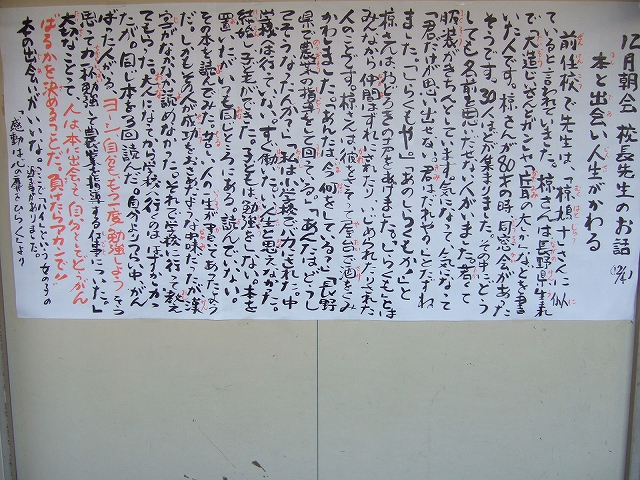 12月朝会 校長先生のお話 (12/4)
本と出会い人生がかわる
前任校で先生は、「椋鳩十さんに似
ているど言われていました。椋さんは長野県生まれ
で、「大造じいさんとガンや「片耳の大シカ」などを書
いた人です。椋さんが80才の時、同窓会があった
そうです。30人ほどが集まりました。その中にどう
しても名前を思いだせない人がいました。着て
服装がきちんとしています。気になって、気になって
「君だけが思い出せない。君はだれや。」とたずね
ました。「しらくもや。」「あのしらくもか。」と
椋さんはおどろきの声をあげました。しらくもとは
みんなから仲間はずれにされたり、いじめられたりされた
人のことです。椋さんは彼をさそって屋台で酒をくみ
かわしました。「あんたは今何をしている?」「長野
県で農業の指導をして回っている。」「あんたはどうし
てそうなったんか?」「私は小学校で力つきた。中
学校は行っていない。すぐ働いた。いい人生と思えなかた。
結婚し子をもった。子どもは勉強をしない。本を
置いたがいつも同じところにある。読んでいない。
その本を読んでみた。古い人の一生が書いてあったよう
だ。しかもその人が成功をおさめたような中味だった。が漢
字がなかなか読めなかった。それで学校に行って教え
てもらった。大人になってから学校へ行くのははずかしか
った。同じ本を3回読んだ。自分よりつらい中、がん
ばった人がいる。ヨーシ、自分ももう一度勉強しよう。そう
思ってわ杯勉強して農業を指導する仕事についた。」
大切なことで、人は本と出会って自分がもっとどうがん
ばるかを決めることだ。負けたらアカンで!!
本の出会いがいいな。
「感動は心の扉をひらく」より